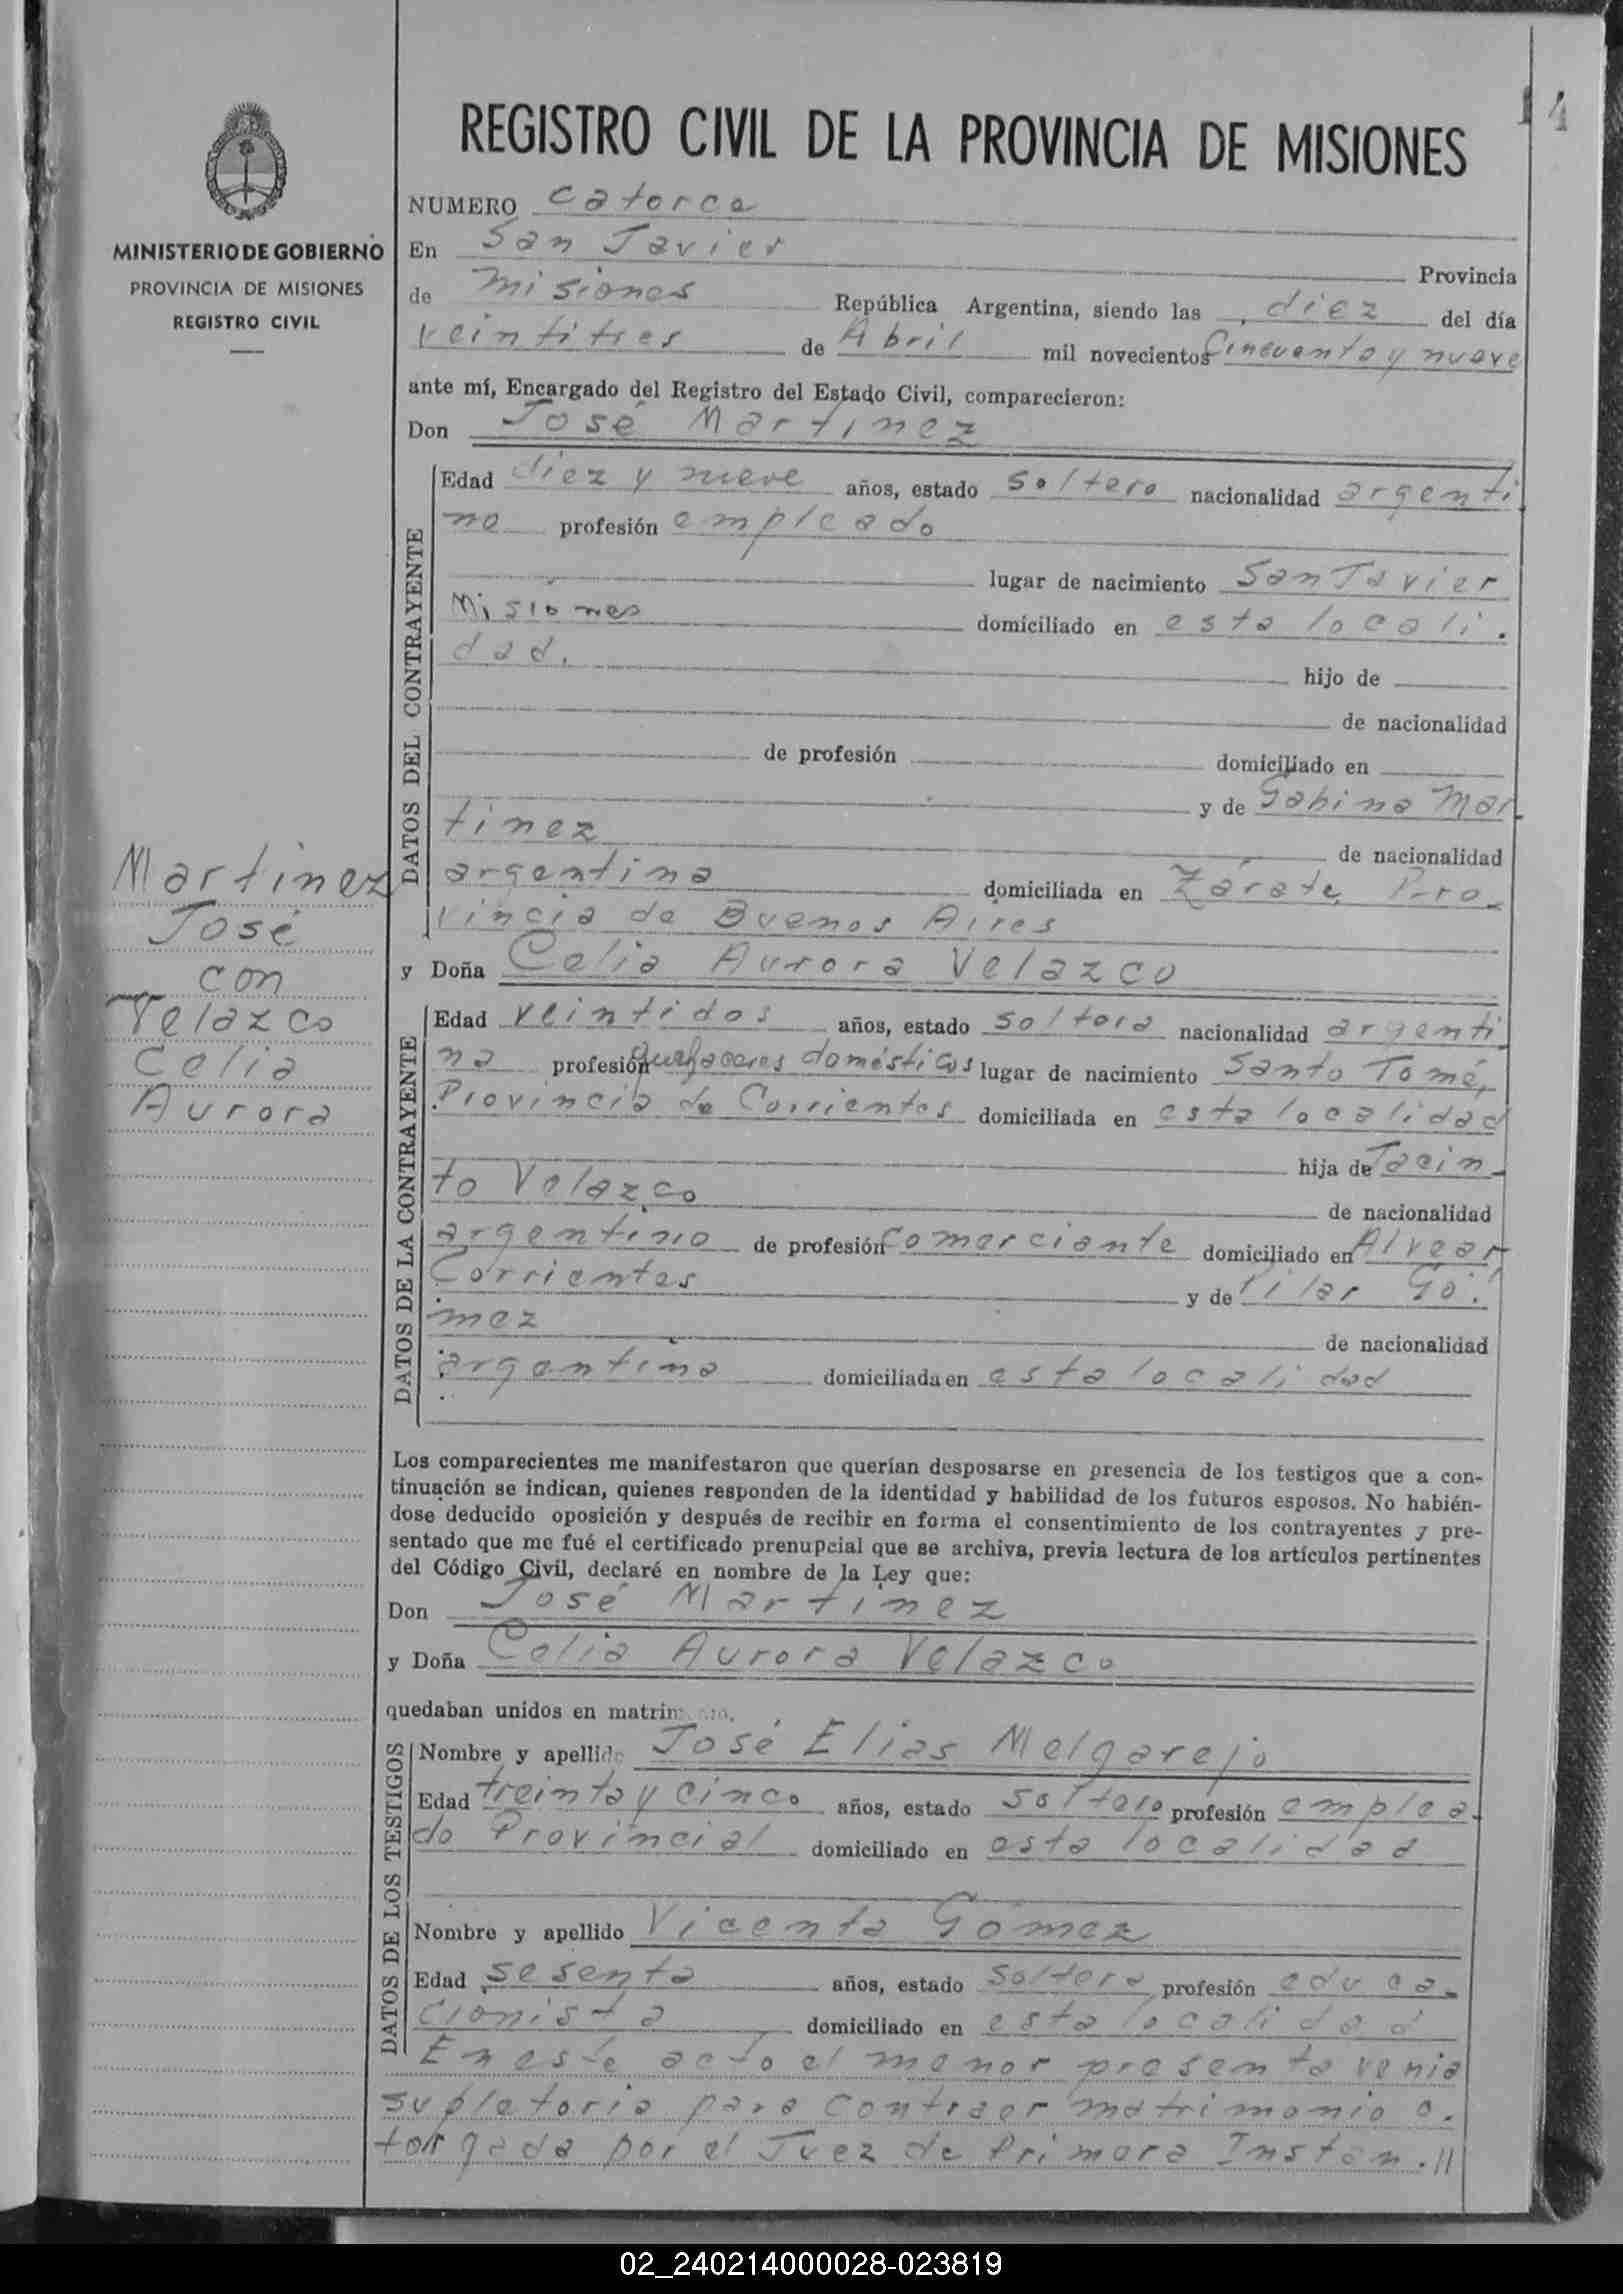 14
REGISTRO CIVIL DE LA PROVINCIA DE MISIONES
MINISTERIO DE GOBIERNO
PROVINCIA DE MISIONES
REGISTRO CIVIL
NUMERO catorce
En San Javier Provincia
de Misiones República Argentina, siendo las diez del día
veintitres de Abril mil novecientos Cincuenta y nueve
ante mí, Encargado del Registro del Estado Civil, comparecieron:
Don José Martinez
DATOS DEL CONTRAYENTE
Edad diez y nueve años, estado soltero nacionalidad argenti
no profesión empleado
lugar de nacimiento San Javier
Misiones domiciliado en esta locali.
dad. hijo de
de nacionalidad
de profesión domiciliado en
y de Gabina Mar
tinez de nacionalidad
argentina domiciliada en Zárate, Pro-
vincia de Buenos Aires
Martinez
José
con
Velazco
Celia
Aurora
y Doña Celia Aurora Velazco
DATOS DE LA CONTRAYENTE
Edad veintidos años, estado soltera nacionalidad argenti
na profesión quehaceres domésticos lugar de nacimiento Santo Tomé,
Provincia de Corrientes domiciliada en esta localidad
hija de Jacin-
to Velazco de nacionalidad
argentino de profesión comerciante domiciliado en Alvear
Corrientes y de Pilar Gó.
mez de nacionalidad
argentina domiciliada en esta localidad
Los comparecientes me manifestaron que querían desposarse en presencia de los testigos que a con-
tinuación se indican, quienes responden de la identidad y habilidad de los futuros esposos. No habién-
dose deducido oposición y después de recibir en forma el consentimiento de los contrayentes y pre-
sentado que me fué el certificado prenupcial que se archiva, previa lectura de los artículos pertinentes
del Código Civil, declaré en nombre de la Ley que:
Don José Martinez
y Doña Celia Aurora Velazco
quedaban unidos en matrimonio.
DATOS DE LOS TESTIGOS
Nombre y apellido José Elias Melgarejo
Edad treinta y cinco años, estado soltero profesión emplea-
do Provincial domiciliado en esta localidad
Nombre y apellido Vicenta Gómez
Edad sesenta años, estado soltera profesión educa-
cionista domiciliado en esta localidad
En este acto el menor presenta venia
supletoria para contraer matrimonio o.
torgada por el Juez de Primera Instan.//
02_240214000028-023819